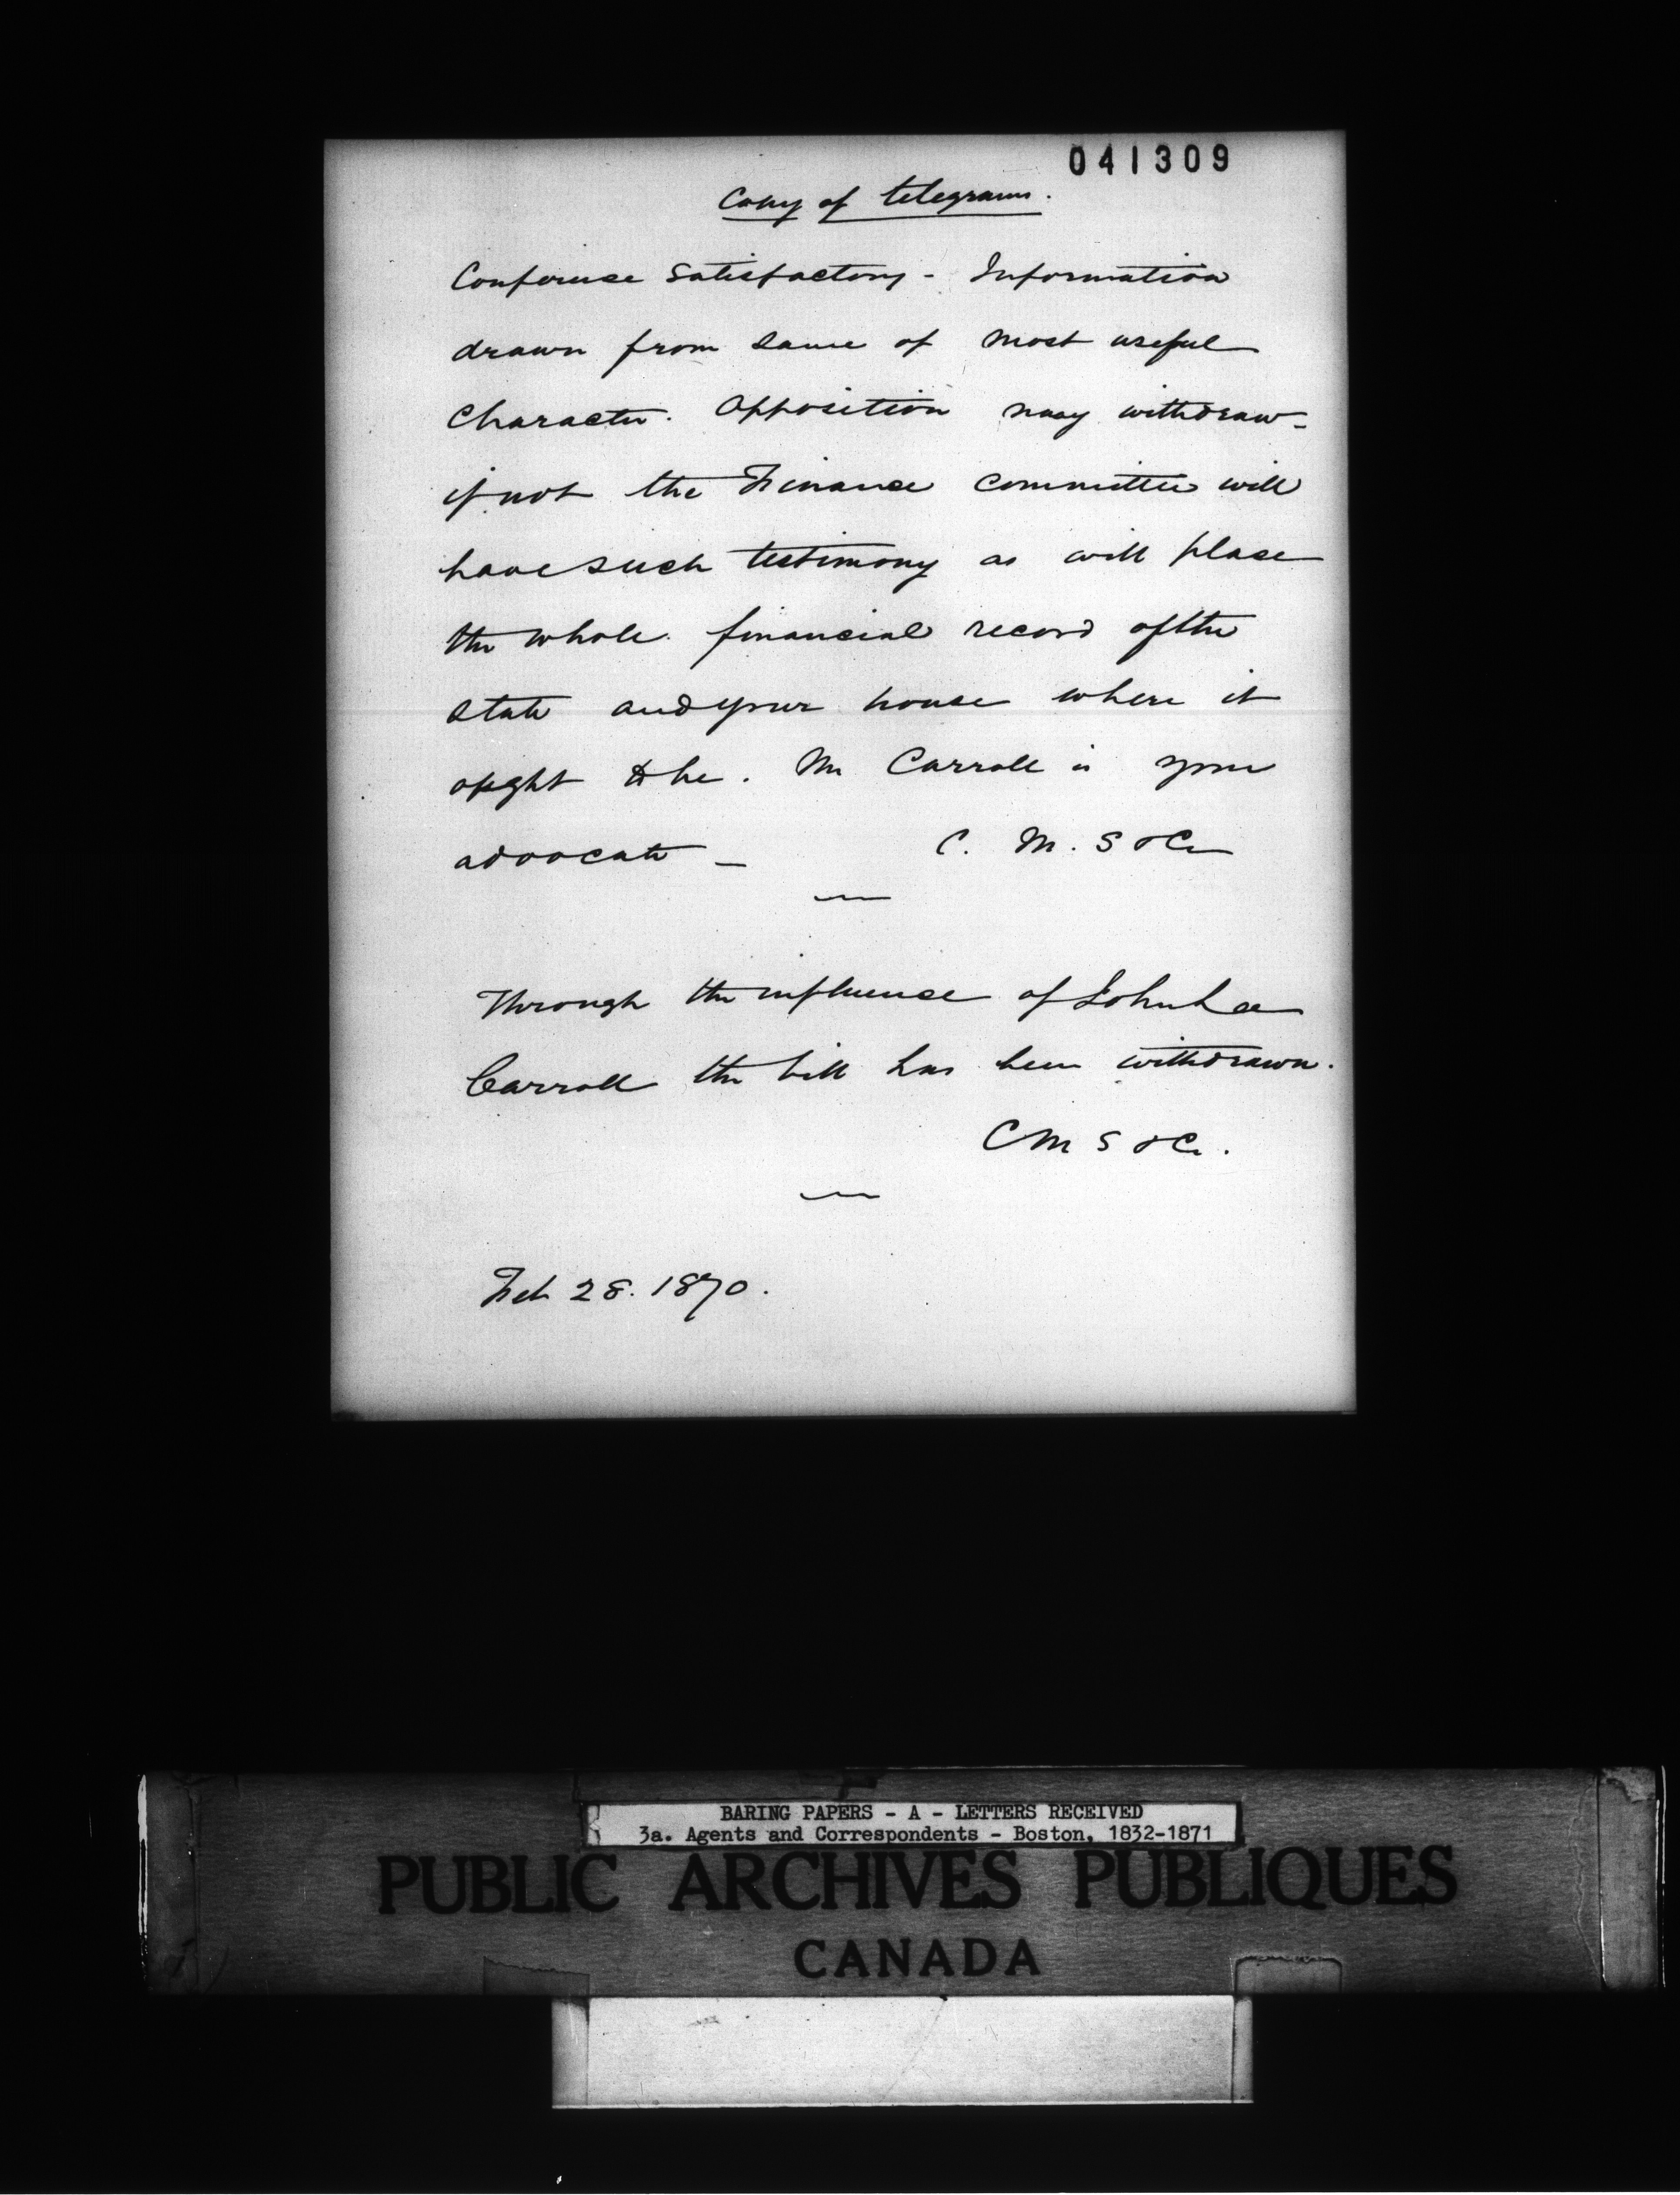 041309
Copy of telegrams.
Conference Satisfactory - Information
drawn from same of most useful
Character. Opposition may withdraw -
if not the Finance Committee will
have such testimony as will place
the whole financial record of the
State and your house where it
ought to be. Mr Carroll is your
advocate - C. M. S & Co
Through the influence of John Lee
Carroll the bill has been withdrawn.
C M S & Co.
Feb 28. 1870.
BARING PAPERS - A - LETTERS RECEIVED
3a. Agents and Correspondents - Boston, 1832-1871
PUBLIC ARCHIVES PUBLIQUES
CANADA